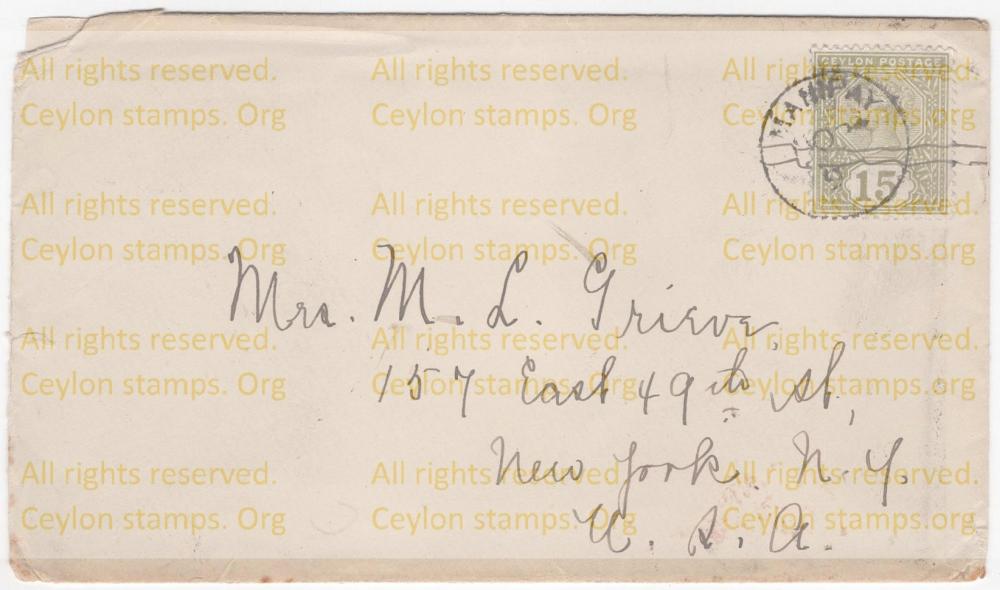 CEYLON POSTAGE
MANIPAY
OC
15
Mrs. M. L. Grieve,
157 East 49th St,
New York. N. Y.
U. S. A.
All rights reserved. All rights reserved. All rights reserved.
Ceylon stamps. Org Ceylon stamps. Org Ceylon stamps. Org
All rights reserved. All rights reserved. All rights reserved.
Ceylon stamps. Org Ceylon stamps. Org Ceylon stamps. Org
All rights reserved. All rights reserved. All rights reserved.
Ceylon stamps. Org Ceylon stamps. Org Ceylon stamps. Org
All rights reserved. All rights reserved. All rights reserved.
Ceylon stamps. Org Ceylon stamps. Org Ceylon stamps. Org